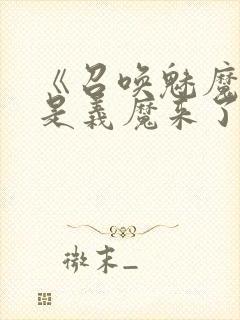 《召唤魅魔
是义魔来了
微末_